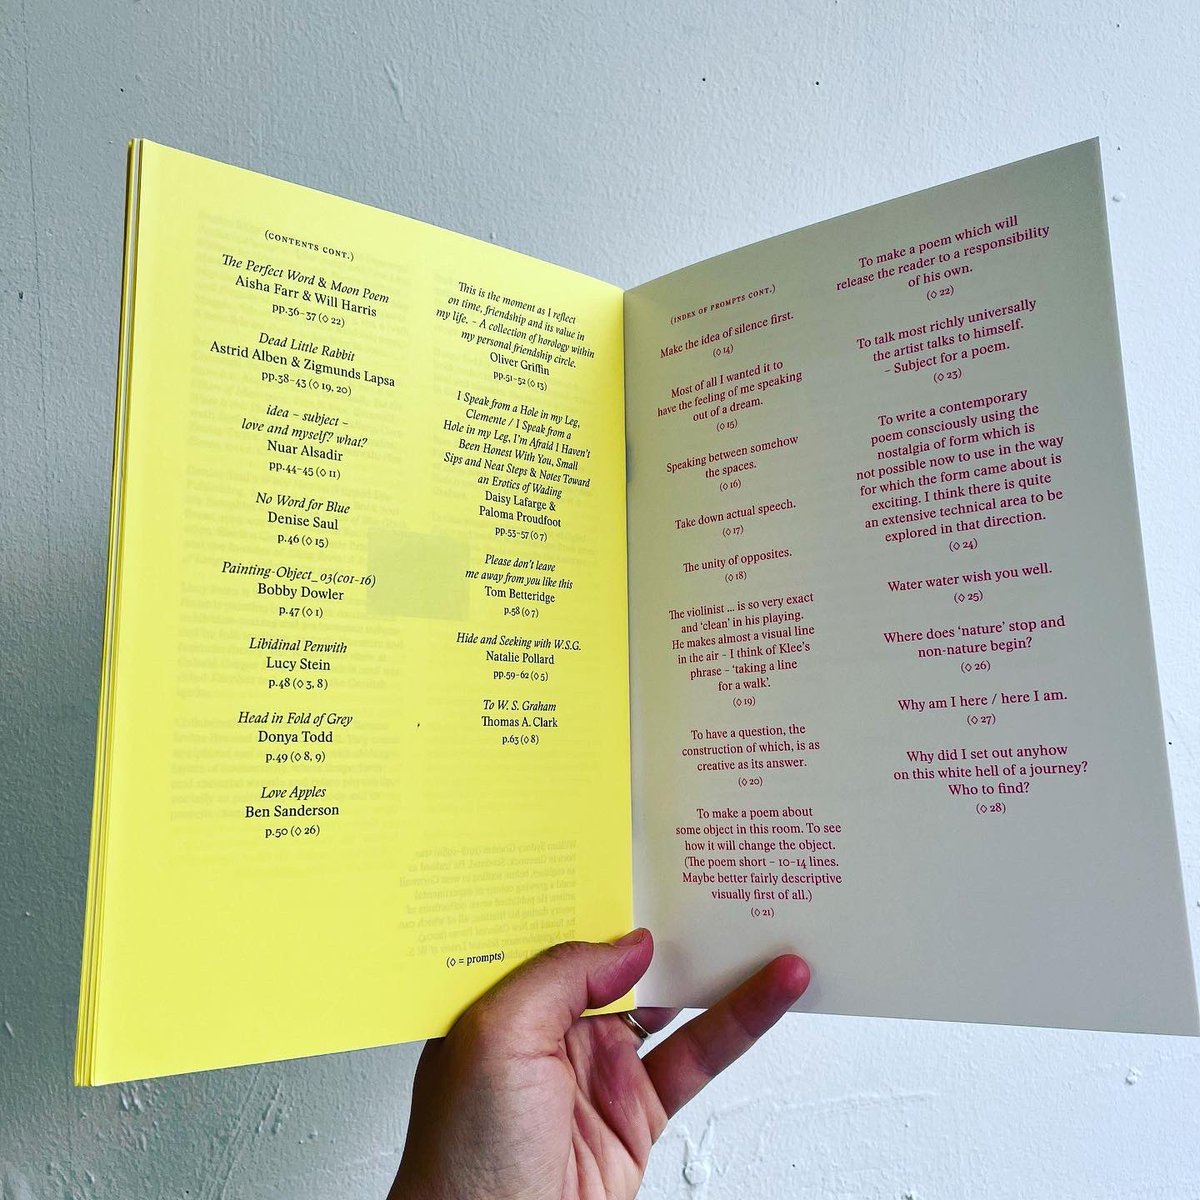 (CONTENTS CONT.)
The Perfect Word & Moon Poem
Aisha Farr & Will Harris
pp.36–37 (◊ 22)
Dead Little Rabbit
Astrid Alben & Zigmunds Lapsa
pp.38–43 (◊ 19, 20)
idea – subject –
love and myself? what?
Nuar Alsadir
pp.44–45 (◊ 11)
No Word for Blue
Denise Saul
p.46 (◊ 15)
Painting-Object_03(c01-16)
Bobby Dowler
p.47 (◊ 1)
Libidinal Penwith
Lucy Stein
p.48 (◊ 3, 8)
Head in Fold of Grey
Donya Todd
p.49 (◊ 8, 9)
Love Apples
Ben Sanderson
p.50 (◊ 26)
This is the moment as I reflect
on time, friendship and its value in
my life. – A collection of horology within
my personal friendship circle.
Oliver Griffin
pp.51–52 (◊ 13)
I Speak from a Hole in my Leg,
Clemente / I Speak from a
Hole in my Leg, I'm Afraid I Haven't
Been Honest With You, Small
Sips and Neat Steps & Notes Toward
an Erotics of Wading
Daisy Lafarge &
Paloma Proudfoot
pp.53–57 (◊ 7)
Please don't leave
me away from you like this
Tom Betteridge
p.58 (◊ 7)
Hide and Seeking with W.S.G.
Natalie Pollard
pp.59–62 (◊ 5)
To W. S. Graham
Thomas A. Clark
p.63 (◊ 8)
(◊ = prompts)
(INDEX OF PROMPTS CONT.)
Make the idea of silence first.
(◊ 14)
Most of all I wanted it to
have the feeling of me speaking
out of a dream.
(◊ 15)
Speaking between somehow
the spaces.
(◊ 16)
Take down actual speech.
(◊ 17)
The unity of opposites.
(◊ 18)
The violinist ... is so very exact
and 'clean' in his playing.
He makes almost a visual line
in the air – I think of Klee's
phrase – 'taking a line
for a walk'.
(◊ 19)
To have a question, the
construction of which, is as
creative as its answer.
(◊ 20)
To make a poem about
some object in this room. To see
how it will change the object.
(The poem short – 10–14 lines.
Maybe better fairly descriptive
visually first of all.)
(◊ 21)
To make a poem which will
release the reader to a responsibility
of his own.
(◊ 22)
To talk most richly universally
the artist talks to himself.
– Subject for a poem.
(◊ 23)
To write a contemporary
poem consciously using the
nostalgia of form which is
not possible now to use in the way
for which the form came about is
exciting. I think there is quite
an extensive technical area to be
explored in that direction.
(◊ 24)
Water water wish you well.
(◊ 25)
Where does 'nature' stop and
non-nature begin?
(◊ 26)
Why am I here / here I am.
(◊ 27)
Why did I set out anyhow
on this white hell of a journey?
Who to find?
(◊ 28)